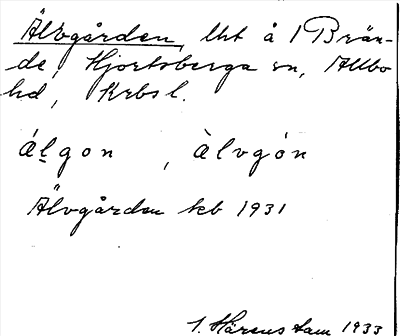 Älvgården, lht å 1 Brän-
de, Hjortsberga sn, Allbo
hd, Krbs l.
álgon, àlvgón
Älvgården kb 1931
1. Härens sam 1933